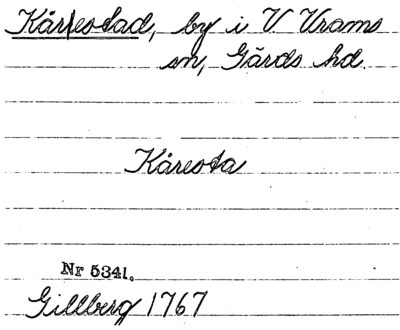 Kårestad, by i V. Vrams
sn, Gärds hd.
Kåresta
Nr 5341.
Gillberg 1767